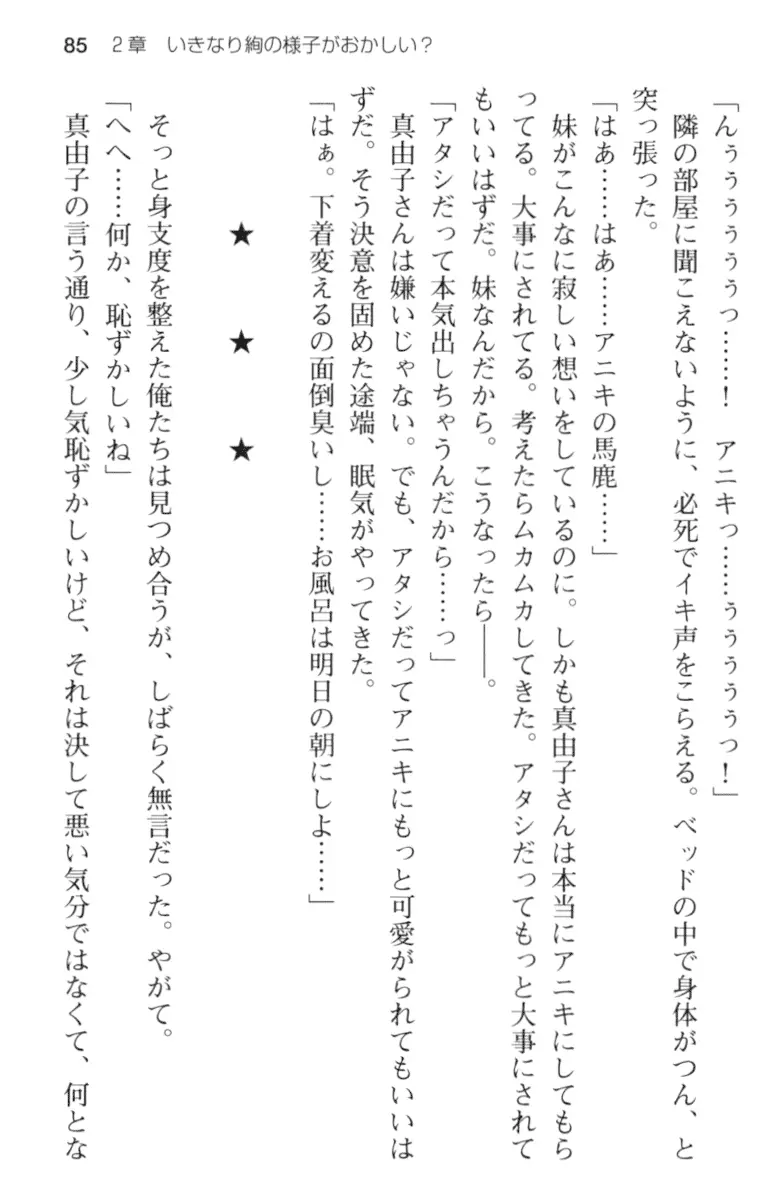 85 2章 いきなり絢の様子がおかしい？
「んぅぅぅぅぅぅっ……！　アニキっ……ぅぅぅぅぅっ！」
隣の部屋に聞こえないように、必死でイキ声をこらえる。ベッドの中で身体がつん、と
突っ張った。
「はあ……はあ……アニキの馬鹿……」
妹がこんなに寂しい想いをしているのに。しかも真由子さんは本当にアニキにしてもら
ってる。大事にされてる。考えたらムカムカしてきた。アタシだってもっと大事にされて
もいいはずだ。妹なんだから。こうなったら――。
「アタシだって本気出しちゃうんだから……っ」
真由子さんは嫌いじゃない。でも、アタシだってアニキにもっと可愛がられてもいいは
ずだ。そう決意を固めた途端、眠気がやってきた。
「はぁ。下着変えるの面倒臭いし……お風呂は明日の朝にしよ……」
★　★　★
そっと身支度を整えた俺たちは見つめ合うが、しばらく無言だった。やがて。
「へへ……何か、恥ずかしいね」
真由子の言う通り、少し気恥ずかしいけど、それは決して悪い気分ではなくて、何とな